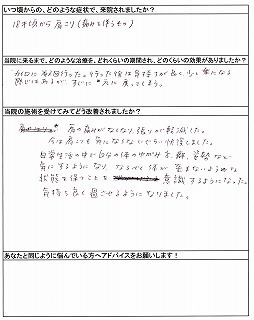 いつ頃からの、どのような症状で、来院されましたか?
18才頃から肩こり(痛みを伴うもの)
当院に来るまで、どのような治療を、どれくらいの期間され、どのくらいの効果がありましたか?
行った後は気持ちが良く、少し楽になる
感じはあるが、すぐに元に戻ってしまう。
当院の施術を受けてみてどう改善されましたか?
肩の痛みがなくなり張りが軽減した。
今は肩こりも気にならないぐらい快復しました。
日常生活の中で自分の体のゆがみや、癖、姿勢など
気にするようになり、なるべく体が歪まないような
状態を保つことを意識するようになった。
気持ち良く過ごせるようになりました。
あなたと同じように悩んでいる方へアドバイスをお願いします!